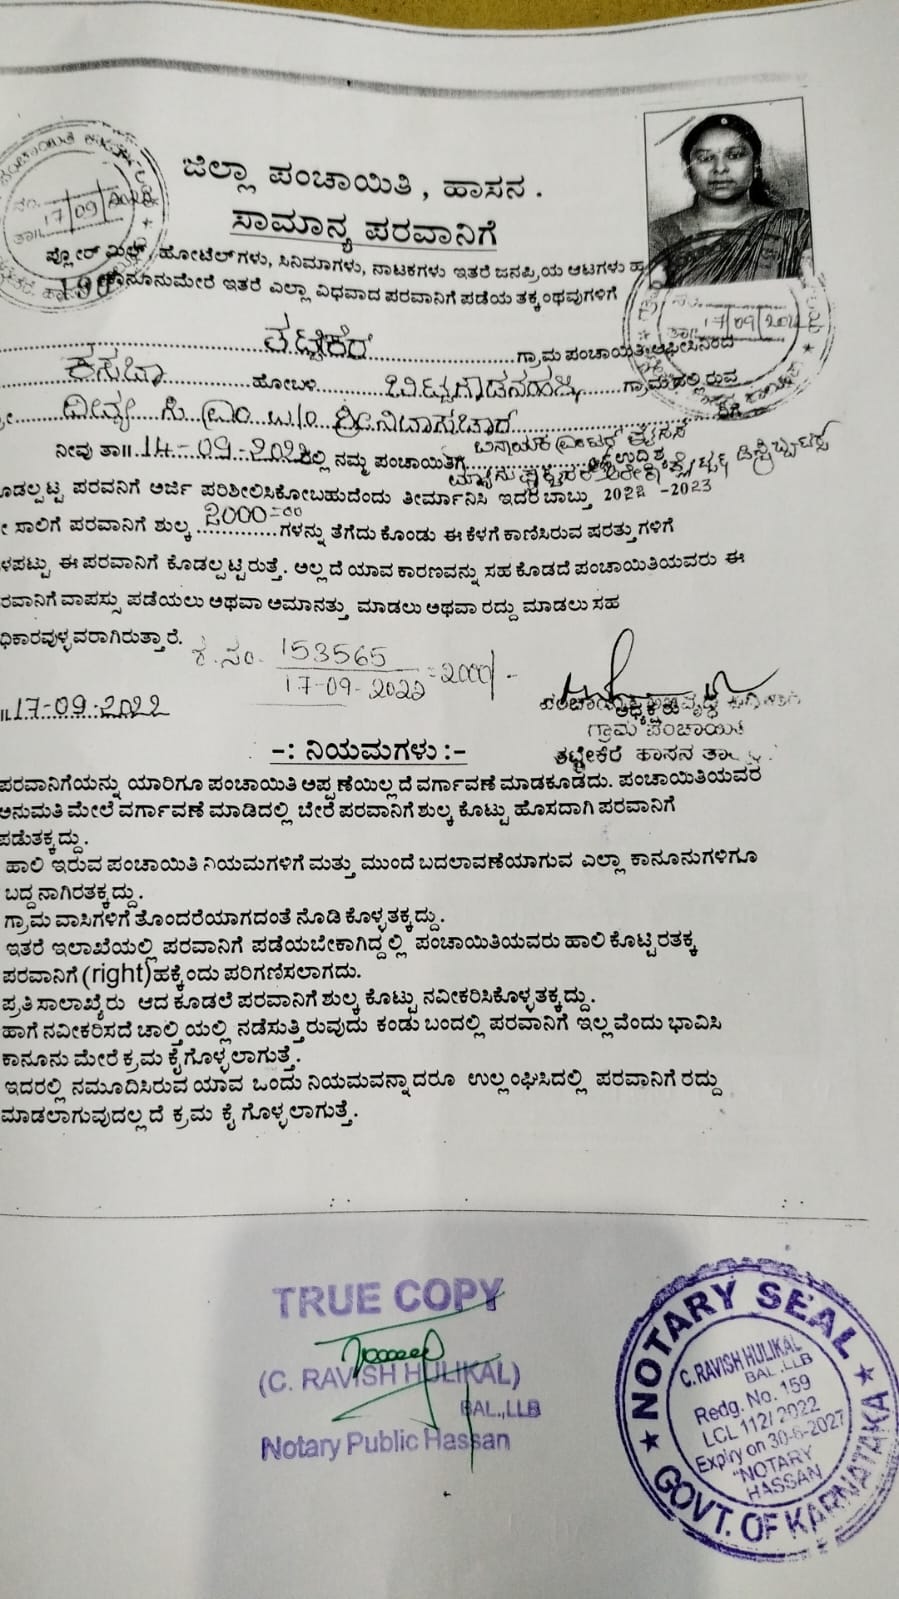 ಜಿಲ್ಲಾ ಪಂಚಾಯಿತಿ, ಹಾಸನ.
ಸಾಮಾನ್ಯ ಪರವಾನಿಗೆ
17/09/2022
ಪ್ಲೋರ್ ಮಿಲ್, ಹೋಟೆಲ್‌ಗಳು, ಸಿನಿಮಾಗಳು, ನಾಟಕಗಳು ಇತರೆ ಜನಪ್ರಿಯ ಆಟಗಳು
ಕಾನೂನುಮೇರೆ ಇತರೆ ಎಲ್ಲಾ ವಿಧವಾದ ಪರವಾನಿಗೆ ಪಡೆಯ ತಕ್ಕಂಥವುಗಳಿಗೆ
17/09/2022
ತಟ್ಟೇಕೆರೆ ಗ್ರಾಮ ಪಂಚಾಯಿತಿ ಆಫೀಸಿನಿಂದ
ಕಸಬಾ ಹೋಬಳಿ ಗ್ರಾಮದಲ್ಲಿರುವ
ಸಿ.ಎಂ W/o ಶ್ರೀನಿವಾಸಾಚಾರ್ ರಿಗೆ
ನೀವು ತಾ॥ 14-09-2022 ರಲ್ಲಿ ನಮ್ಮ ಪಂಚಾಯಿತಿಗೆ
ಕೊಡಲ್ಪಟ್ಟ ಪರವನಿಗೆ ಅರ್ಜಿ ಪರಿಶೀಲಿಸಿಕೋಬಹುದೆಂದು ತೀರ್ಮಾನಿಸಿ ಇದರ ಬಾಬ್ತು 2022 -2023
ನೇ ಸಾಲಿಗೆ ಪರವಾನಿಗೆ ಶುಲ್ಕ 2000=00 ಗಳನ್ನು ತೆಗೆದು ಕೊಂಡು ಈ ಕೆಳಗೆ ಕಾಣಿಸಿರುವ ಷರತ್ತುಗಳಿಗೆ
ಒಳಪಟ್ಟು ಈ ಪರವಾನಿಗೆ ಕೊಡಲ್ಪಟ್ಟಿರುತ್ತೆ. ಅಲ್ಲದೆ ಯಾವ ಕಾರಣವನ್ನು ಸಹ ಕೊಡದೆ ಪಂಚಾಯಿತಿಯವರು ಈ
ಪರವಾನಿಗೆ ವಾಪಸ್ಸು ಪಡೆಯಲು ಅಥವಾ ಅಮಾನತ್ತು ಮಾಡಲು ಅಥವಾ ರದ್ದು ಮಾಡಲು ಸಹ
ಅಧಿಕಾರವುಳ್ಳವರಾಗಿರುತ್ತಾರೆ.
ಕ್ರ.ಸಂ. 153565 / 17-09-2022 =2000/-
ತಾ॥ 17-09-2022
ಗ್ರಾಮ ಪಂಚಾಯಿತಿ
ತಟ್ಟೇಕೆರೆ ಹಾಸನ ತಾ
-: ನಿಯಮಗಳು :-
ಪರವಾನಿಗೆಯನ್ನು ಯಾರಿಗೂ ಪಂಚಾಯಿತಿ ಅಪ್ಪಣೆಯಿಲ್ಲದೆ ವರ್ಗಾವಣೆ ಮಾಡಕೂಡದು. ಪಂಚಾಯಿತಿಯವರ
ಅನುಮತಿ ಮೇಲೆ ವರ್ಗಾವಣೆ ಮಾಡಿದಲ್ಲಿ ಬೇರೆ ಪರವಾನಿಗೆ ಶುಲ್ಕ ಕೊಟ್ಟು ಹೊಸದಾಗಿ ಪರವಾನಿಗೆ
ಪಡೆತಕ್ಕದ್ದು.
ಹಾಲಿ ಇರುವ ಪಂಚಾಯಿತಿ ನಿಯಮಗಳಿಗೆ ಮತ್ತು ಮುಂದೆ ಬದಲಾವಣೆಯಾಗುವ ಎಲ್ಲಾ ಕಾನೂನುಗಳಿಗೂ
ಬದ್ದನಾಗಿರತಕ್ಕದ್ದು.
ಗ್ರಾಮ ವಾಸಿಗಳಿಗೆ ತೊಂದರೆಯಾಗದಂತೆ ನೊಡಿ ಕೊಳ್ಳತಕ್ಕದ್ದು.
ಇತರೆ ಇಲಾಖೆಯಲ್ಲಿ ಪರವಾನಿಗೆ ಪಡೆಯಬೇಕಾಗಿದ್ದಲ್ಲಿ ಪಂಚಾಯಿತಿಯವರು ಹಾಲಿ ಕೊಟ್ಟಿರತಕ್ಕ
ಪರವಾನಿಗೆ (right) ಹಕ್ಕೆಂದು ಪರಿಗಣಿಸಲಾಗದು.
ಪ್ರತಿ ಸಾಲಾಖೈರು ಆದ ಕೂಡಲೆ ಪರವಾನಿಗೆ ಶುಲ್ಕ ಕೊಟ್ಟು ನವೀಕರಿಸಿಕೊಳ್ಳತಕ್ಕದ್ದು.
ಹಾಗೆ ನವೀಕರಿಸದೆ ಚಾಲ್ತಿಯಲ್ಲಿ ನಡೆಸುತ್ತಿರುವುದು ಕಂಡು ಬಂದಲ್ಲಿ ಪರವಾನಿಗೆ ಇಲ್ಲವೆಂದು ಭಾವಿಸಿ
ಕಾನೂನು ಮೇರೆ ಕ್ರಮ ಕೈಗೊಳ್ಳಲಾಗುತ್ತೆ.
ಇದರಲ್ಲಿ ನಮೂದಿಸಿರುವ ಯಾವ ಒಂದು ನಿಯಮವನ್ನಾದರೂ ಉಲ್ಲಂಘಿಸಿದಲ್ಲಿ ಪರವಾನಿಗೆ ರದ್ದು
ಮಾಡಲಾಗುವುದಲ್ಲದೆ ಕ್ರಮ ಕೈ ಗೊಳ್ಳಲಾಗುತ್ತೆ.
TRUE COPY
(C. RAVISH HULIKAL)
BAL.,LLB
Notary Public Hassan
NOTARY SEAL
C. RAVISH HULIKAL
BAL.,LLB
Redg. No. 159
LCL 112/ 2022
Expiry on 30-6-2027
"NOTARY
HASSAN
GOVT. OF KARNATAKA